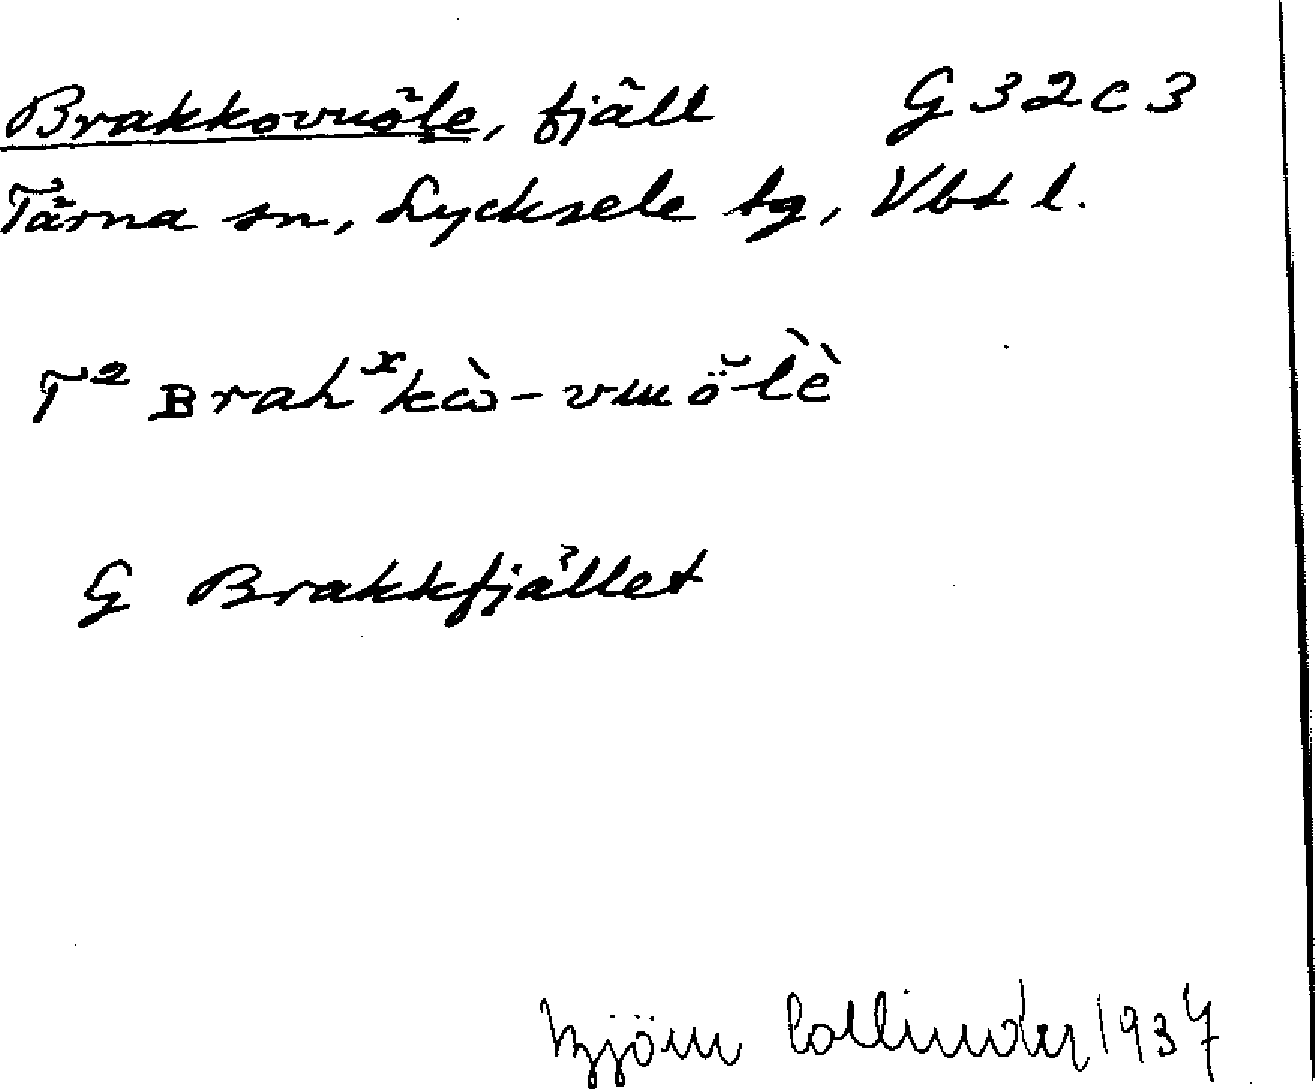 Brakkovuöle, fjäll G 32 c 3
Tärna sn, Lycksele lg, Vbt l.
T² ʙrahˣkὼ-vuɯö̆l̀è
G Brakkfjället
Björn Collinder 1937